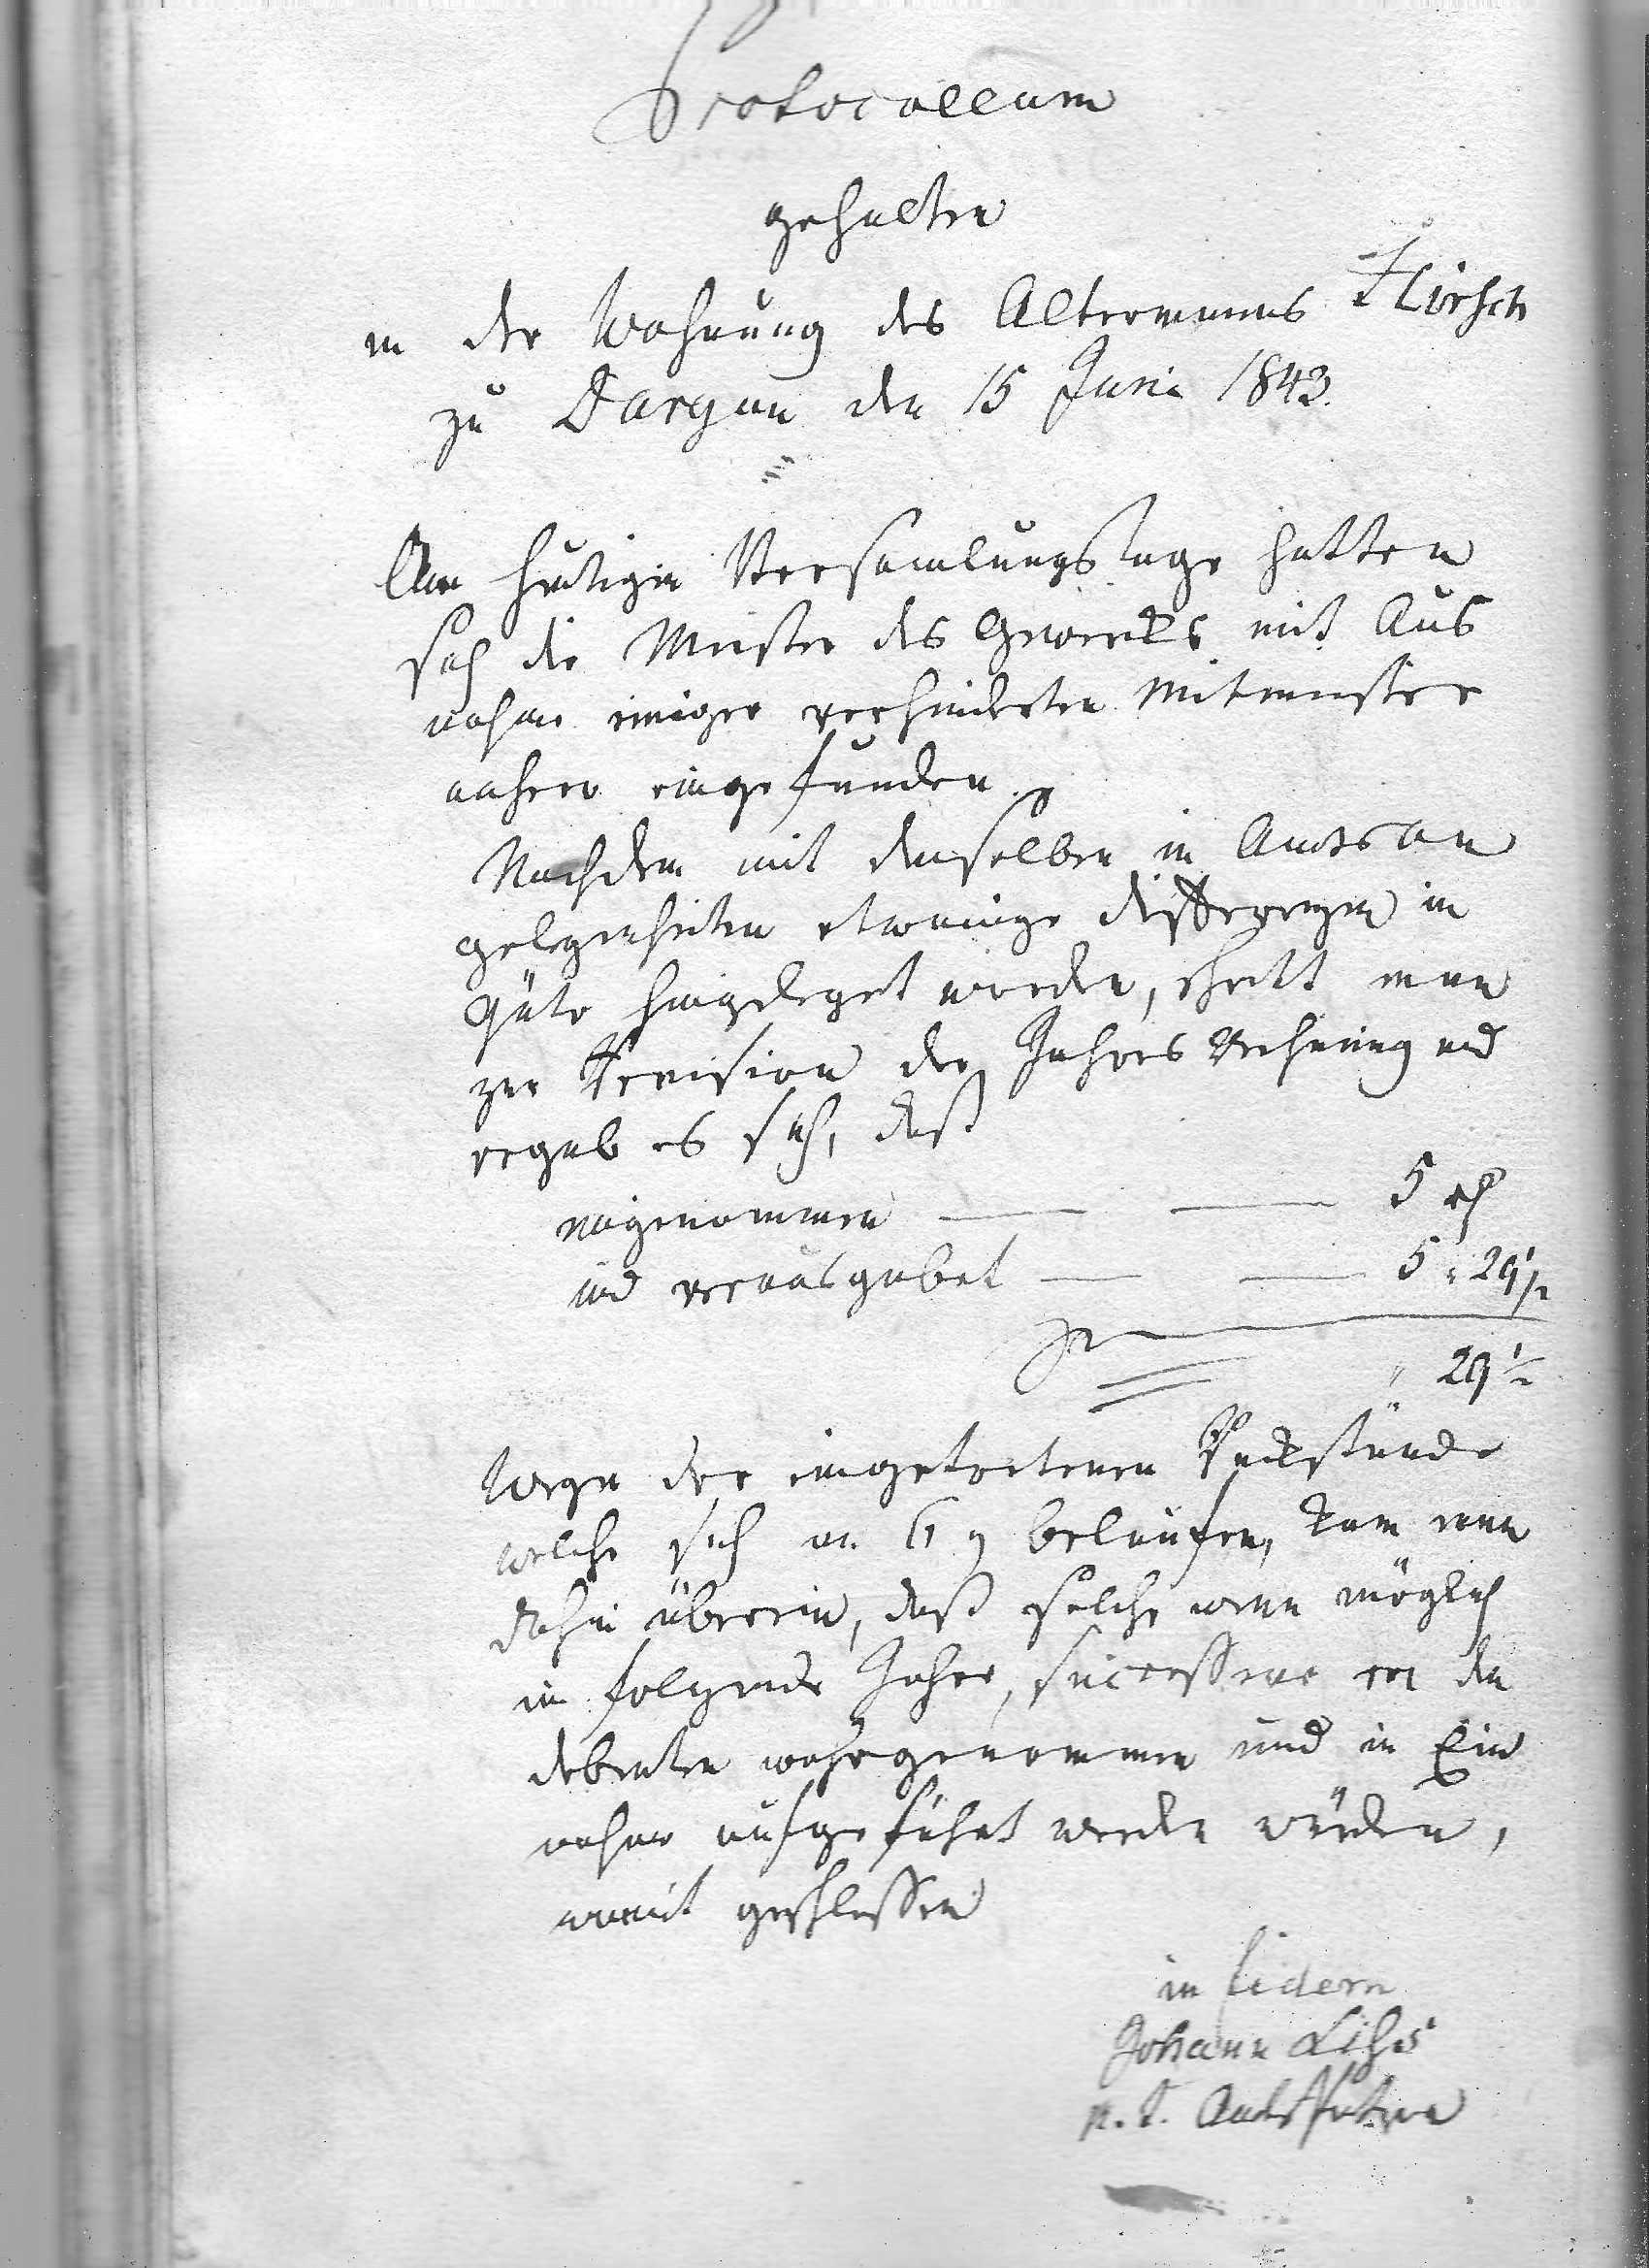 Protocollum
gehalten
in der Wohnung des Altermanns
zu Dargun den 15 Juni 1843.
Am heutigen Versamlungstage hatten
sich die Meister des Gewerks mit Aus
nahme einiger verhinderten Mitmeister
anhero eingefunden.
Nachdem mit denselben in Amtsan
gelegenheiten etwanige differenzen in
Güte hingeleget worden, schritt man
zur Revision der Jahres Rechnung und
ergab es sich, daß
eingenommen — — 5 rh
und verausgabet — — 5 " 29½
" 29½
Wegen der eingetretenen Rückstände
welche sich an belaufen, kam man
dahin überein, daß solche wenn möglich
im folgende Jahre, successive von den
debenten wahrgenommen und in Ein
nahme aufgeführt werden würden,
womit geschlossen
in fidem
Johann
p. t.